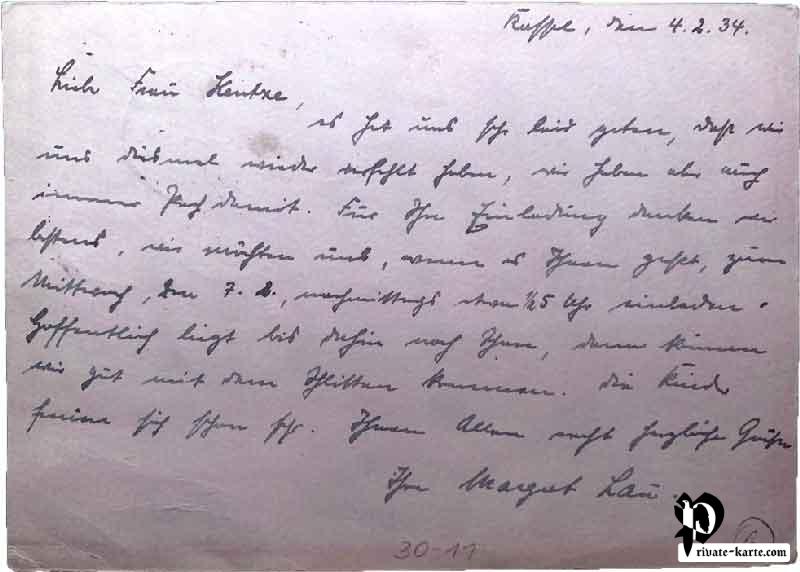 Kassel, den 4.2.34.
Liebe Frau Hentze,
es hat uns sehr leid getan, daß wir
uns diesmal wieder verfehlt haben, wir haben aber auch
immer Pech damit. Für Ihre Einladung danken wir
bestens, wir möchten uns, wenn es Ihnen geht, zum
Mittwoch, den 7.2., nachmittags etwa ½5 Uhr einladen.
Hoffentlich liegt bis dahin noch Schnee, dann können
wir gut mit dem Schlitten kommen. Die Kinder
freuen sich schon sehr. Ihnen Allen recht herzliche Grüße
Ihre Margret Lau.
30-11
private-karte.com